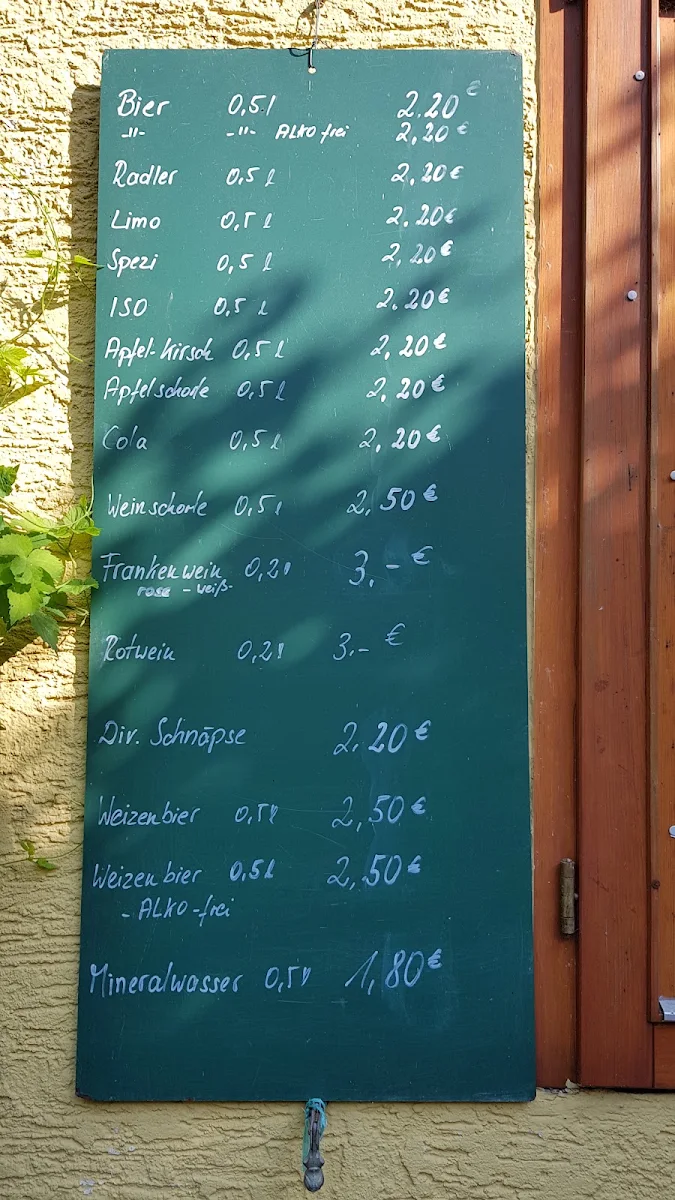 Bier 0,5 l 2,20 €
-"- -"- ALKO frei 2,20 €
Radler 0,5 l 2,20 €
Limo 0,5 l 2,20 €
Spezi 0,5 l 2,20 €
ISO 0,5 l 2,20 €
Apfel-Kirsch 0,5 l 2,20 €
Apfelschorle 0,5 l 2,20 €
Cola 0,5 l 2,20 €
Weinschorle 0,5 l 2,50 €
Frankenwein 0,2 l 3.- €
rose - weiß-
Rotwein 0,2 l 3.- €
Div. Schnäpse 2,20 €
Weizenbier 0,5 l 2,50 €
Weizenbier 0,5 l 2,50 €
- ALKO - frei
Mineralwasser 0,5 l 1,80 €